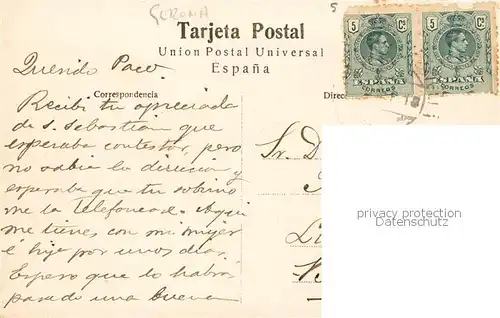 GERONA
5
Tarjeta Postal
Union Postal Universal
España
5 Cs 5 Cs
ESPAÑA ESPAÑA
CORREOS CORREOS
Correspondencia
Direc
Querido Paco.
Recibi tu apreciada
de S. Sebastian que
esperaba contestar, pero
no sabia la direccion y
esperaba que tu sobrino
me la telefonease. Aqui
me tienes con mi mujer
é hija por unos dias.
Espero que lo habrás
pasado una buena
Sr. D
privacy protection
Datenschutz